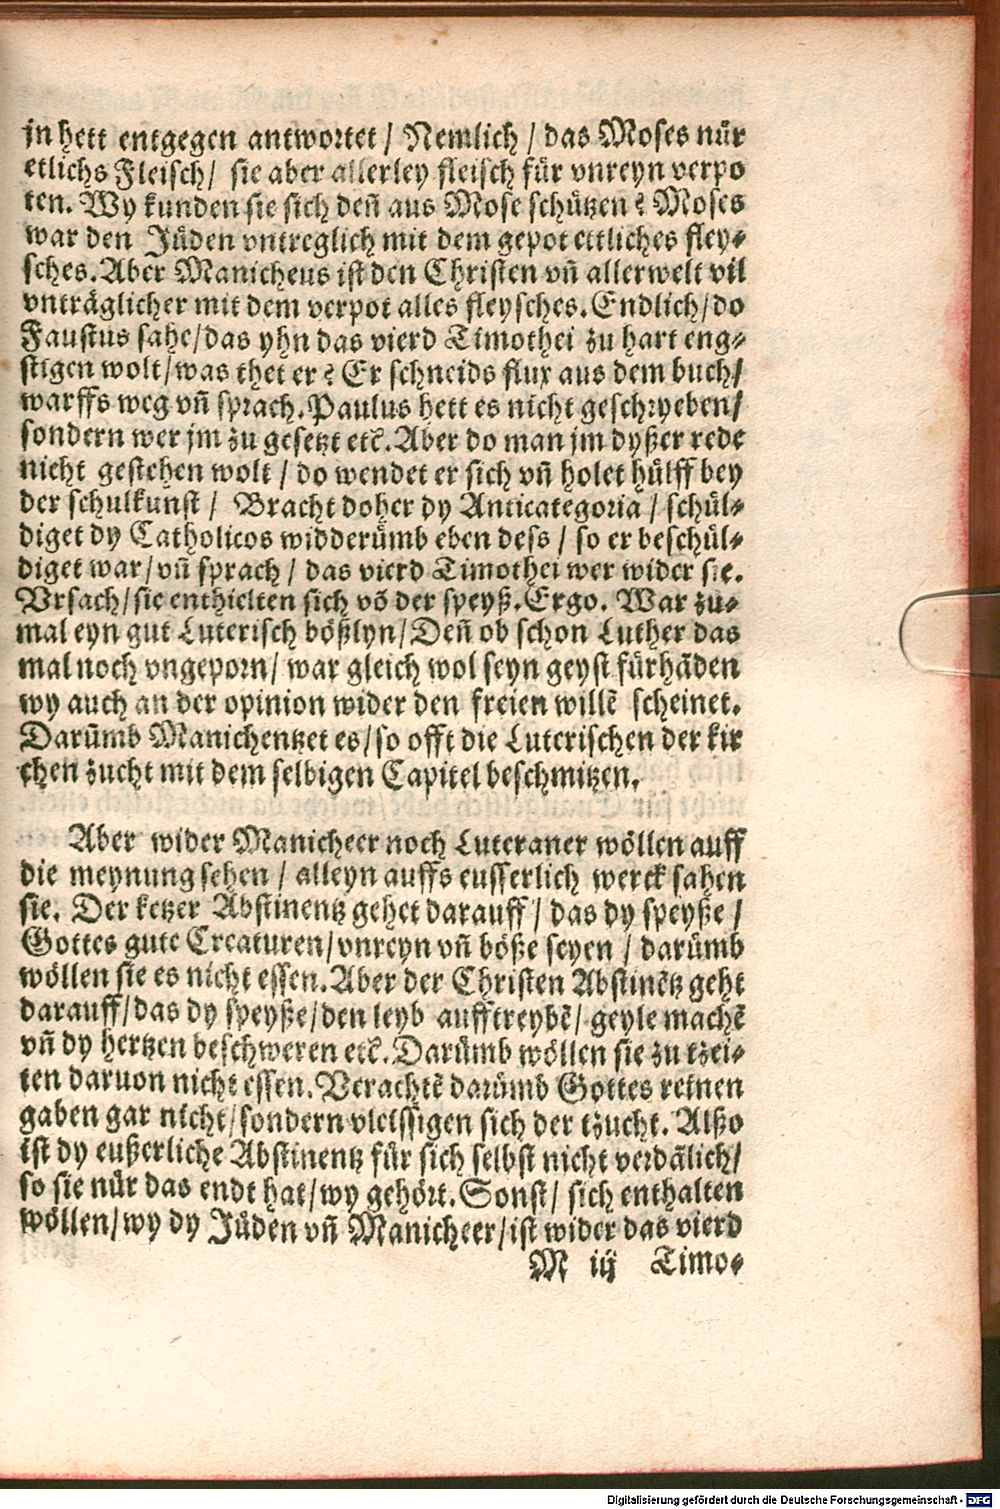 jn hett entgegen antwortet / Nemlich / das Moses nür
etlichs Fleisch / sie aber allerley fleisch für vnreyn verpo
ten. Wy kunden sie sich deñ aus Mose schützen? Moses
war den Jüden vntreglich mit dem gepot ettliches fley⸗
sches. Aber Manicheus ist den Christen vñ allerwelt vil
vnträglicher mit dem verpot alles fleysches. Endlich / do
Faustus sahe / das yhn das vierd Timothei zu hart eng⸗
stigen wolt / was thet er? Er schneids flux aus dem buch /
warffs weg vñ sprach. Paulus hett es nicht geschryeben /
sondern wer jm zu gesetzt etc̃. Aber do man jm dyßer rede
nicht gestehen wolt / do wendet er sich vñ holet hülff bey
der schulkunst / Bracht doher dy Anticategoria / schül⸗
diget dy Catholicos widderümb eben dess / so er beschül⸗
diget war / vñ sprach / das vierd Timothei wer wider sie.
Vrsach / sie enthielten sich võ der speyß. Ergo. War zu⸗
mal eyn gut Luterisch bößlyn / Deñ ob schon Luther das
mal noch vngeporn / war gleich wol seyn geyst fürhãden
wy auch an der opinion wider den freien willẽ scheinet.
Darümb Manichentzet es / so offt die Luterischen der kir
chen zucht mit dem selbigen Capitel beschmitzen.
Aber wider Manicheer noch Luteraner wöllen auff
die meynung sehen / alleyn auffs eusserlich werck sahen
sie. Der ketzer Abstinentz gehet darauff / das dy speyße /
Gottes gute Creaturen / vnreyn vñ böße seyen / darümb
wöllen sie es nicht essen. Aber der Christen Abstinẽtz geht
darauff / das dy speyße / den leyb aufftreybẽ / geyle machẽ
vñ dy hertzen beschweren etc̃. Darümb wöllen sie zu tzei⸗
ten daruon nicht essen. Verachtẽ darümb Gottes reinen
gaben gar nicht / sondern vleissigen sich der tzucht. Alßo
ist dy eußerliche Abstinentz für sich selbst nicht verdãlich /
so sie nür das endt hat / wy gehört. Sonst / sich enthalten
wöllen / wy dy Jüden vñ Manicheer / ist wider das vierd
M iij Timo⸗
Digitalisierung gefördert durch die Deutsche Forschungsgemeinschaft - DFG